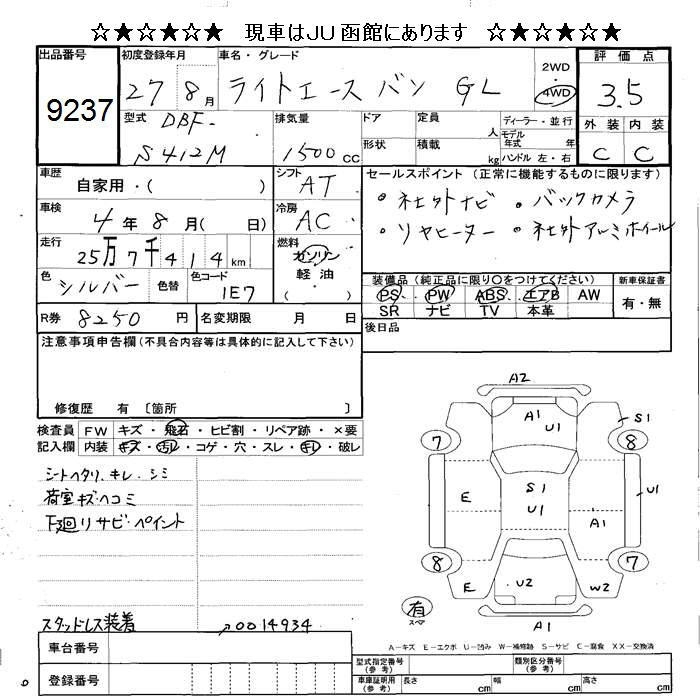 ☆★☆★☆★ 現車はJU函館にあります ★☆★☆★☆
出品番号 初度登録年月 車名・グレード 2WD 評価点
9237 27 8月 ライトエースバン GL 4WD 3.5
型式 DBF- 排気量 ドア 定員 人 ディーラー・並行 外装 内装
S412M 1500cc 形状 積載 kg モデル年式 年式 ハンドル 左・右 C C
車歴 自家用・( ) シフト AT セールスポイント (正常に機能するものに限ります)
車検 4年8月( 日) 冷房 AC ・社外ナビ ・バックカメラ
・リヤヒーター ・社外アルミホイール
走行 25万7千414km 燃料 ガソリン 軽油 ( )
色 シルバー 色替 色コード 1E7
装備品(純正品に限り〇をつけてください) 新車保証書
PS PW ABS エアB AW 有・無
SR ナビ TV 本革
R券 8250円 名変期限 月 日 後日品
注意事項申告欄(不具合内容等は具体的に記入して下さい)
修復歴 有 〔箇所
検査員 FW キズ・飛石・ヒビ割・リペア跡・×要
記入欄 内装 キズ・汚レ・コゲ・穴・スレ・キレ・破レ
シートヘタリ、キレ、シミ
荷室キズ・ヘコミ
下廻リサビ・ペイント
スタッドレス装着 →0014934
車台番号
登録番号
A2
A1 U1 S1
7 8
E S1 U1 A1 U1
8 7
E U2 W2
有 スペア A1
A-キズ E-エクボ U-凹み W-補修跡 S-サビ C-腐食 XX-交換済
型式指定番号(参考) 類別区分番号(参考)
車庫証明用(参考) 長さ cm 幅 cm 高さ cm